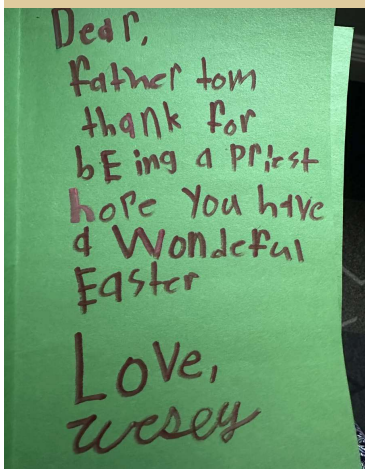 Dear,
father tom
thank for
bEing a priest
hope You have
a Wondeful
Easter
Love,
Wesey